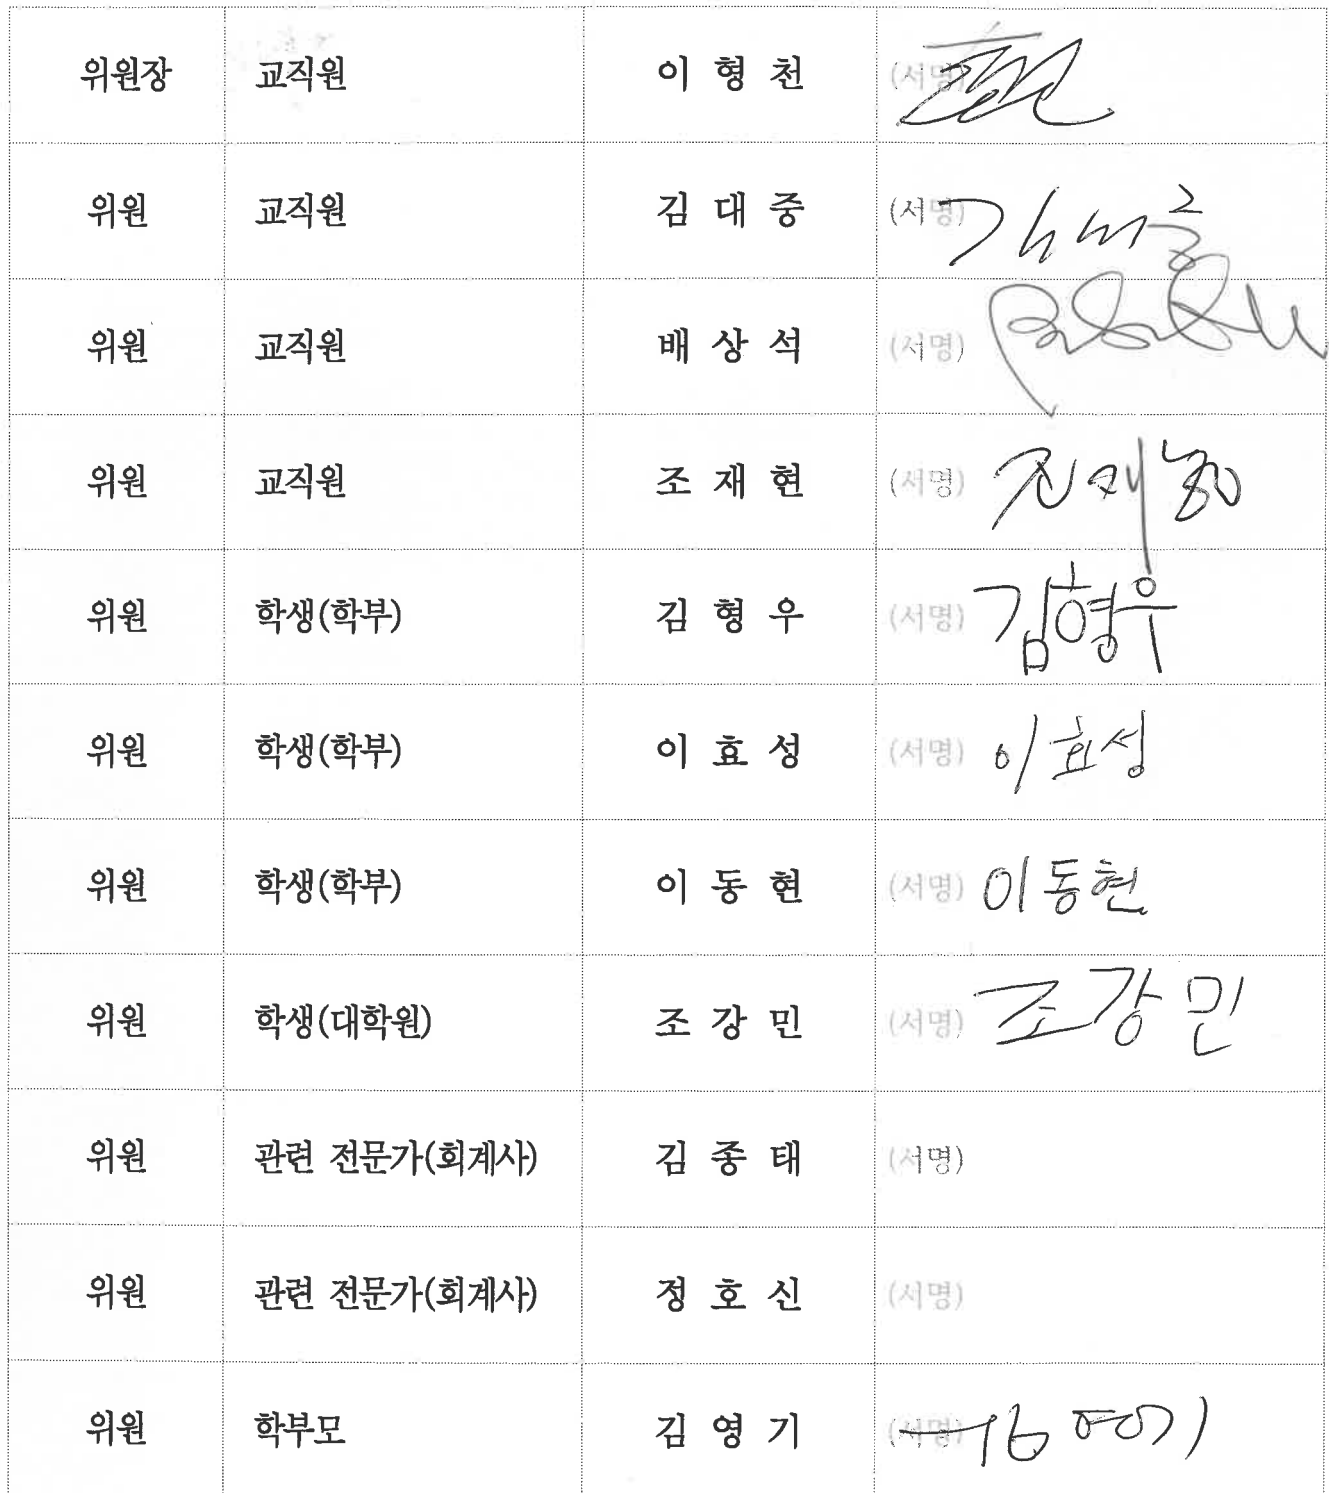 위원장 교직원 이 형 천 (서명)
위원 교직원 김 대 중 (서명) 김대중
위원 교직원 배 상 석 (서명)
위원 교직원 조 재 현 (서명) 조재현
위원 학생(학부) 김 형 우 (서명) 김형우
위원 학생(학부) 이 효 성 (서명) 이효성
위원 학생(학부) 이 동 현 (서명) 이동현
위원 학생(대학원) 조 강 민 (서명) 조강민
위원 관련 전문가(회계사) 김 종 태 (서명)
위원 관련 전문가(회계사) 정 호 신 (서명)
위원 학부모 김 영 기 (서명) 김영기